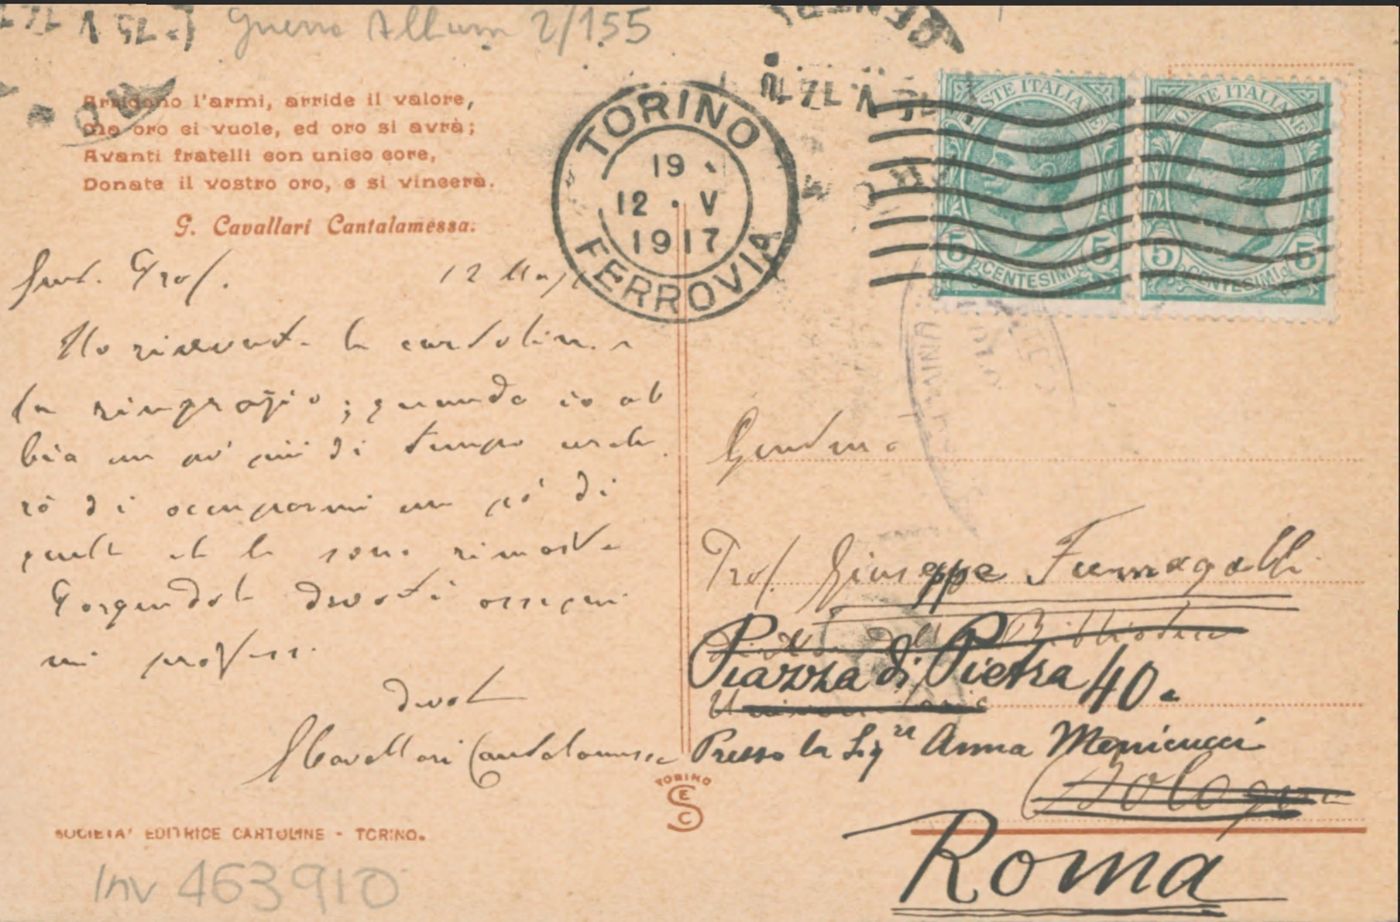 Guerra Album 2/155
Arridono l'armi, arride il valore,
Che oro ci vuole, ed oro si avrà;
Avanti fratelli con unico core,
Donate il vostro oro, e si vincerà.
G. Cavallari Cantalamessa.
TORINO
19
12 · V
1917
FERROVIA
POSTE ITALIANE
5 CENTESIMI 5
POSTE ITALIANE
5 CENTESIMI 5
Gent. Prof. 12
Ho ricevuto la cartolina e
la ringrazio; quando io ab
bia un po' più di tempo
rò di occuparmi un po' di
rimaste
Porgendole devoti
devot
Cavallari Cantalamessa
Prof. Giuseppe Fumagalli
Biblioteca
Piazza di Pietra 40.
Presso la Sigra Anna Menicucci
Bologna
Roma
TORINO
SEC
SOCIETA' EDITRICE CARTOLINE - TORINO.
Inv 463910